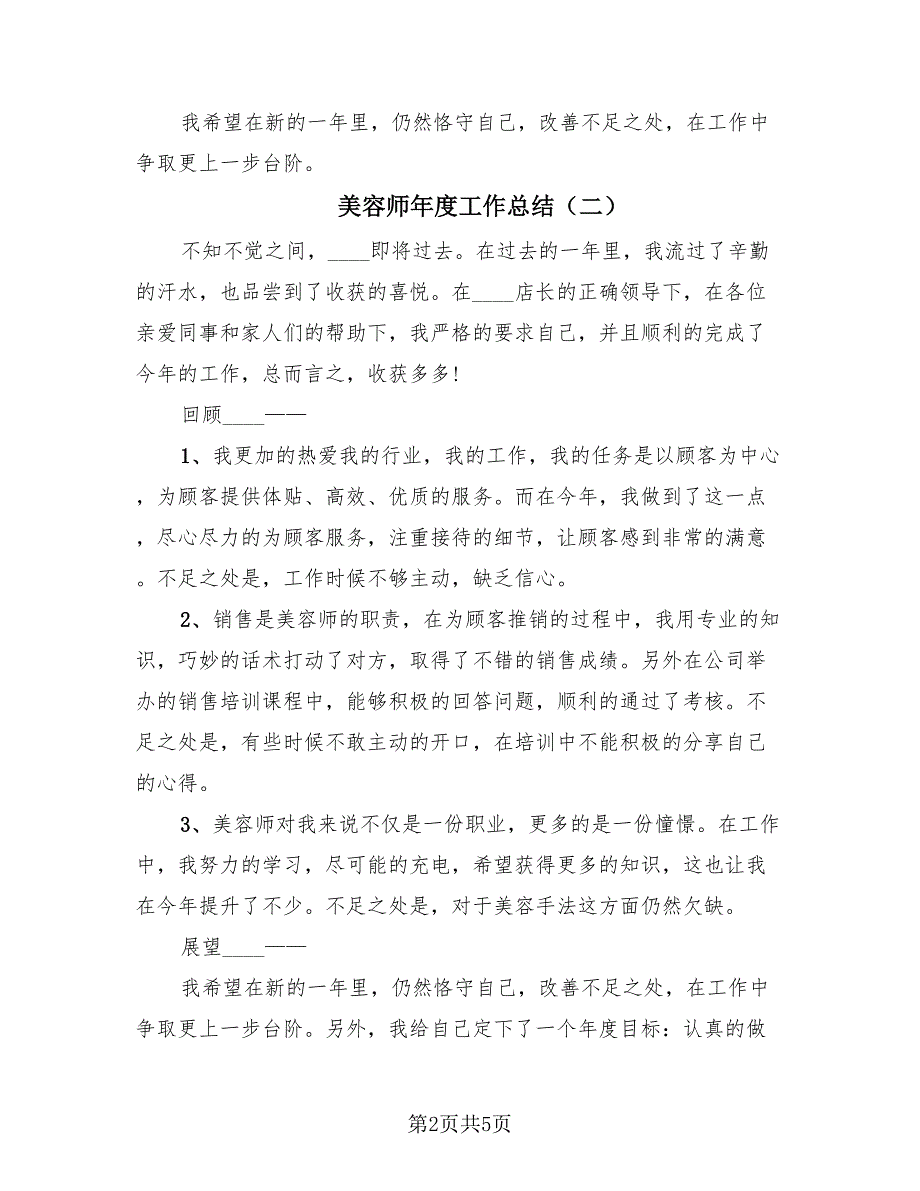 我希望在新的一年里，仍然恪守自己，改善不足之处，在工作中
争取更上一步台阶。
美容师年度工作总结（二）
不知不觉之间，____即将过去。在过去的一年里，我流过了辛勤
的汗水，也品尝到了收获的喜悦。在____店长的正确领导下，在各位
亲爱同事和家人们的帮助下，我严格的要求自己，并且顺利的完成了
今年的工作，总而言之，收获多多!
回顾____——
1、我更加的热爱我的行业，我的工作，我的任务是以顾客为中心
，为顾客提供体贴、高效、优质的服务。而在今年，我做到了这一点
，尽心尽力的为顾客服务，注重接待的细节，让顾客感到非常的满意
。不足之处是，工作时候不够主动，缺乏信心。
2、销售是美容师的职责，在为顾客推销的过程中，我用专业的知
识，巧妙的话术打动了对方，取得了不错的销售成绩。另外在公司举
办的销售培训课程中，能够积极的回答问题，顺利的通过了考核。不
足之处是，有些时候不敢主动的开口，在培训中不能积极的分享自己
的心得。
3、美容师对我来说不仅是一份职业，更多的是一份憧憬。在工作
中，我努力的学习，尽可能的充电，希望获得更多的知识，这也让我
在今年提升了不少。不足之处是，对于美容手法这方面仍然欠缺。
展望____——
我希望在新的一年里，仍然恪守自己，改善不足之处，在工作中
争取更上一步台阶。另外，我给自己定下了一个年度目标：认真的做
第2页共5页